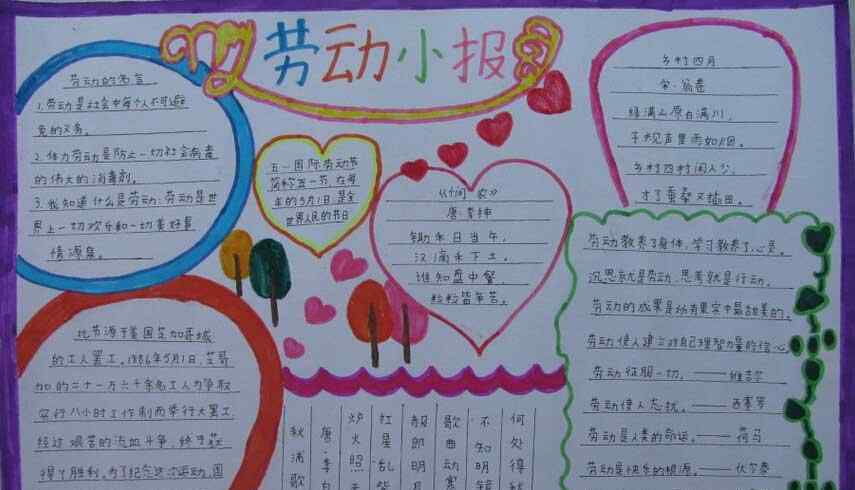 劳动小报
劳动的名言
1.劳动是社会中每个人不可避
免的义务。
2.体力劳动是防止一切社会病毒
的伟大的消毒剂。
3.我知道什么是劳动:劳动是世
界上一切欢乐和一切美好事
情源泉。
五一国际劳动节
简称五一节,在每
年的5月1日,是全
世界人民的节日
《悯农》
唐·李绅
锄禾日当午,
汗滴禾下土。
谁知盘中餐,
粒粒皆辛苦。
乡村四月
宋·翁卷
绿满山原白满川,
子规声里雨如烟。
乡村四月闲人少,
才了蚕桑又插田。
劳动教养了身体,学习教养了心灵。
沉思就是劳动,思考就是行动。
劳动的成果是所有果实中最甜美的。
劳动使人建立对自己理智力量的信心。
劳动征服一切。——维吉尔
劳动使人忘忧。——西塞罗
劳动是人类的命运。——荷马
劳动是快乐的根源。——伏尔泰
此节源于美国芝加哥城
的工人罢工。1886年5月1日,芝哥
加的二十一万六千余名工人为争取
实行八小时工作制而举行大罢工,
经过艰苦的流血斗争,终于获
得了胜利。为了纪念这次运动,国
秋浦歌
唐·李白
炉火照天
红星乱紫
赧郎明月
歌曲动寒
不知明镜
何处得秋